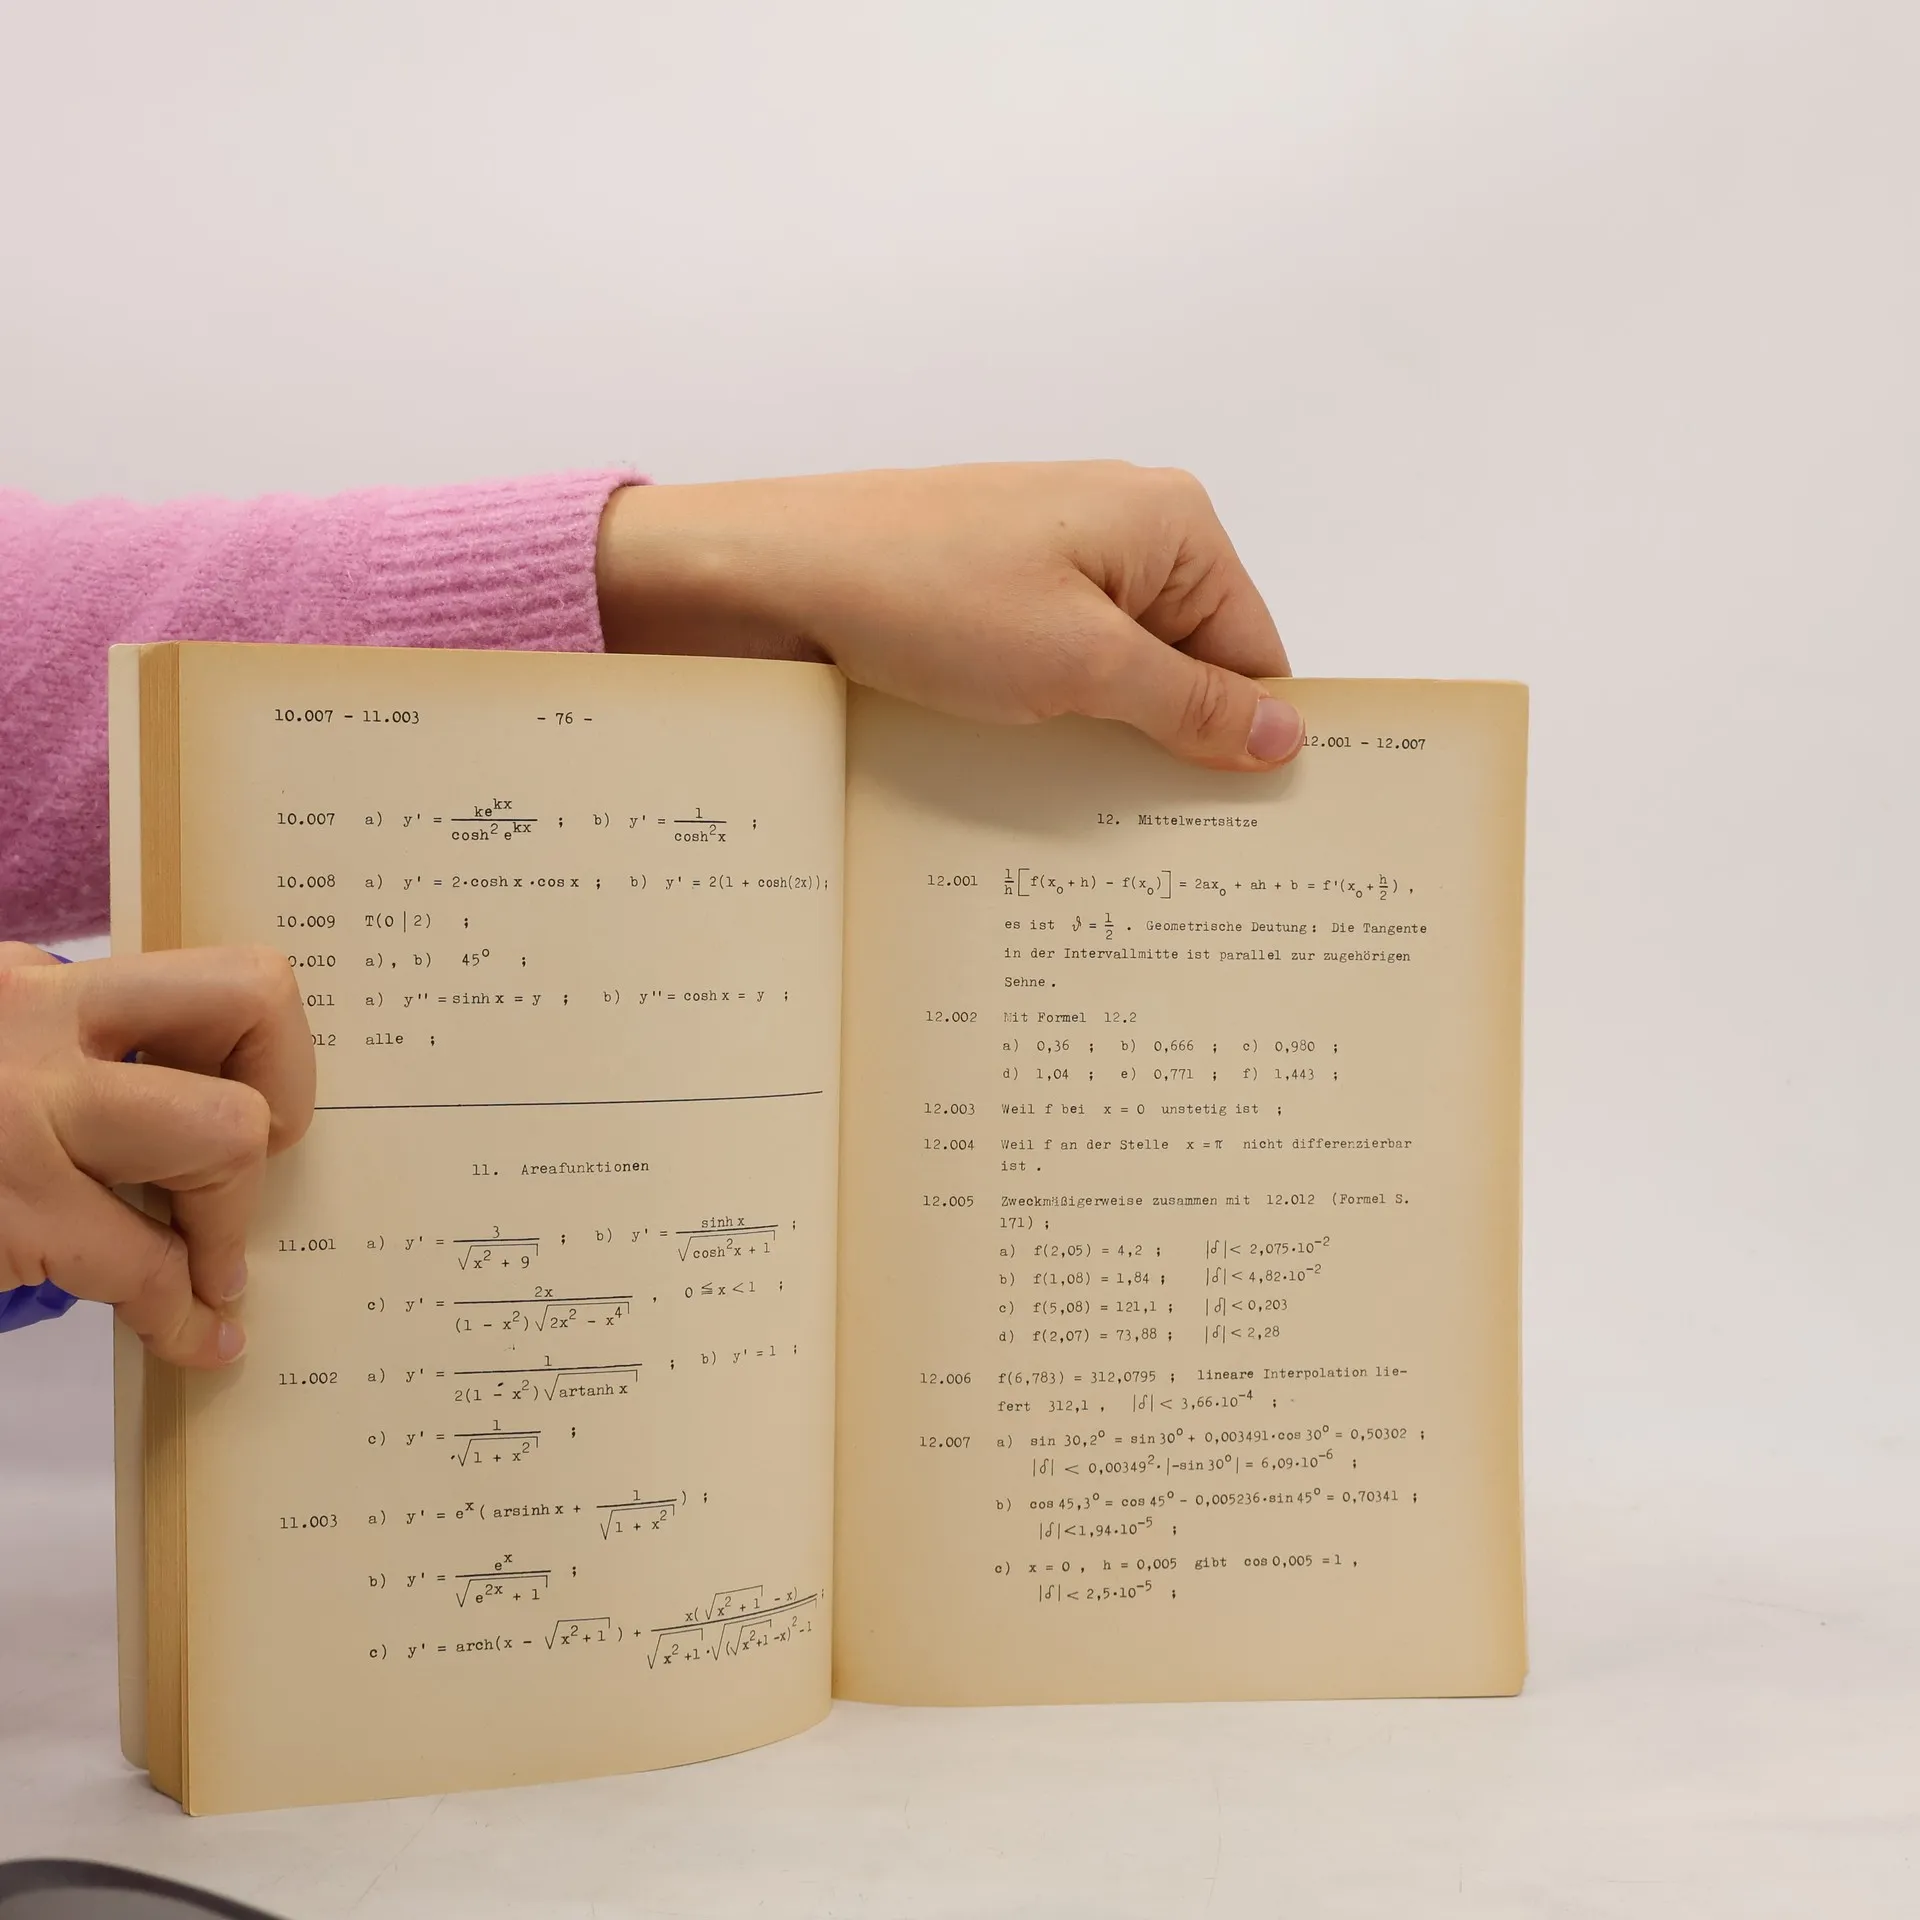 10.007 - 11.003 - 76 -
10.007 a) y' = ke^kx / cosh² e^kx ; b) y' = 1 / cosh²x ;
10.008 a) y' = 2·cosh x·cos x ; b) y' = 2(1 + cosh(2x));
10.009 T(0 | 2) ;
0.010 a), b) 45° ;
.011 a) y'' = sinh x = y ; b) y'' = cosh x = y ;
012 alle ;
11. Areafunktionen
11.001 a) y' = 3 / √(x² + 9) ; b) y' = sinh x / √(cosh²x + 1) ;
c) y' = 2x / (1 - x²)√(2x² - x⁴) , 0 ≦ x < 1 ;
11.002 a) y' = 1 / 2(1 - x²)√(artanh x) ; b) y' = 1 ;
c) y' = 1 / √(1 + x²) ;
11.003 a) y' = e^x ( arsinh x + 1 / √(1 + x²) ) ;
b) y' = e^x / √(e^2x + 1) ;
c) y' = arch(x - √(x²+1) ) + x(√(x² + 1) - x) / √(x²+1)·√((√(x²+1) -x)²-1) ;
12.001 - 12.007
12. Mittelwertsätze
12.001 1/h [f(x₀ + h) - f(x₀)] = 2ax₀ + ah + b = f'(x₀ + h/2) ,
es ist ϑ = 1/2 . Geometrische Deutung: Die Tangente
in der Intervallmitte ist parallel zur zugehörigen
Sehne .
12.002 Mit Formel 12.2
a) 0,36 ; b) 0,666 ; c) 0,980 ;
d) 1,04 ; e) 0,771 ; f) 1,443 ;
12.003 Weil f bei x = 0 unstetig ist ;
12.004 Weil f an der Stelle x = π nicht differenzierbar
ist .
12.005 Zweckmäßigerweise zusammen mit 12.012 (Formel S.
171) ;
a) f(2,05) = 4,2 ; |δ| < 2,075·10⁻²
b) f(1,08) = 1,84 ; |δ| < 4,82·10⁻²
c) f(5,08) = 121,1 ; |δ| < 0,203
d) f(2,07) = 73,88 ; |δ| < 2,28
12.006 f(6,783) = 312,0795 ; lineare Interpolation lie-
fert 312,1 , |δ| < 3,66·10⁻⁴ ;
12.007 a) sin 30,2° = sin 30° + 0,003491·cos 30° = 0,50302 ;
|δ| < 0,00349²·|-sin 30°| = 6,09·10⁻⁶ ;
b) cos 45,3° = cos 45° - 0,005236·sin 45° = 0,70341 ;
|δ| < 1,94·10⁻⁵ ;
c) x = 0 , h = 0,005 gibt cos 0,005 = 1 ,
|δ| < 2,5·10⁻⁵ ;